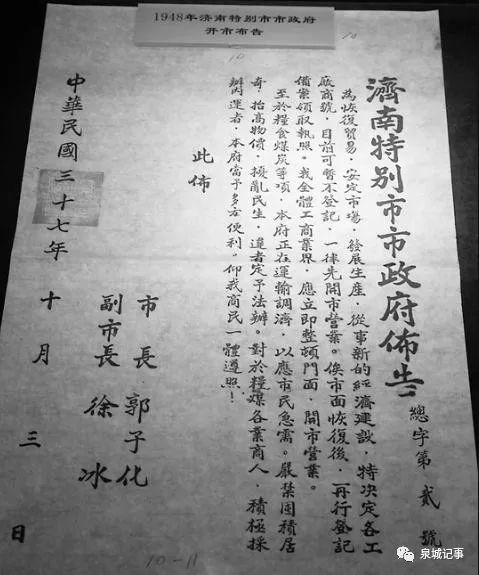 1948年济南特别市市政府
开市布告
濟南特別市市政府佈告
總字第貳號
為恢復貿易，安定市場，發展生產，從事新的經濟建設，特決定各工
廠商號，目前可暫不登記，一律先開市營業。俟市面恢復後，再行登記
備案領取執照。我全體工商業界，應立即整頓門面，開市營業。
至於糧食煤炭等項，本府正在運輸調濟，以應市民急需。嚴禁囤積居
奇，抬高物價，擾亂民生，違者定予法辦。對於糧煤各業商人，積極採
辦內運者，本府當予多方便利。仰我商民一體遵照！
此佈
市長 郭子化
副市長 徐冰
中華民國三十七年十月三日
10
10
10-11
泉城记事